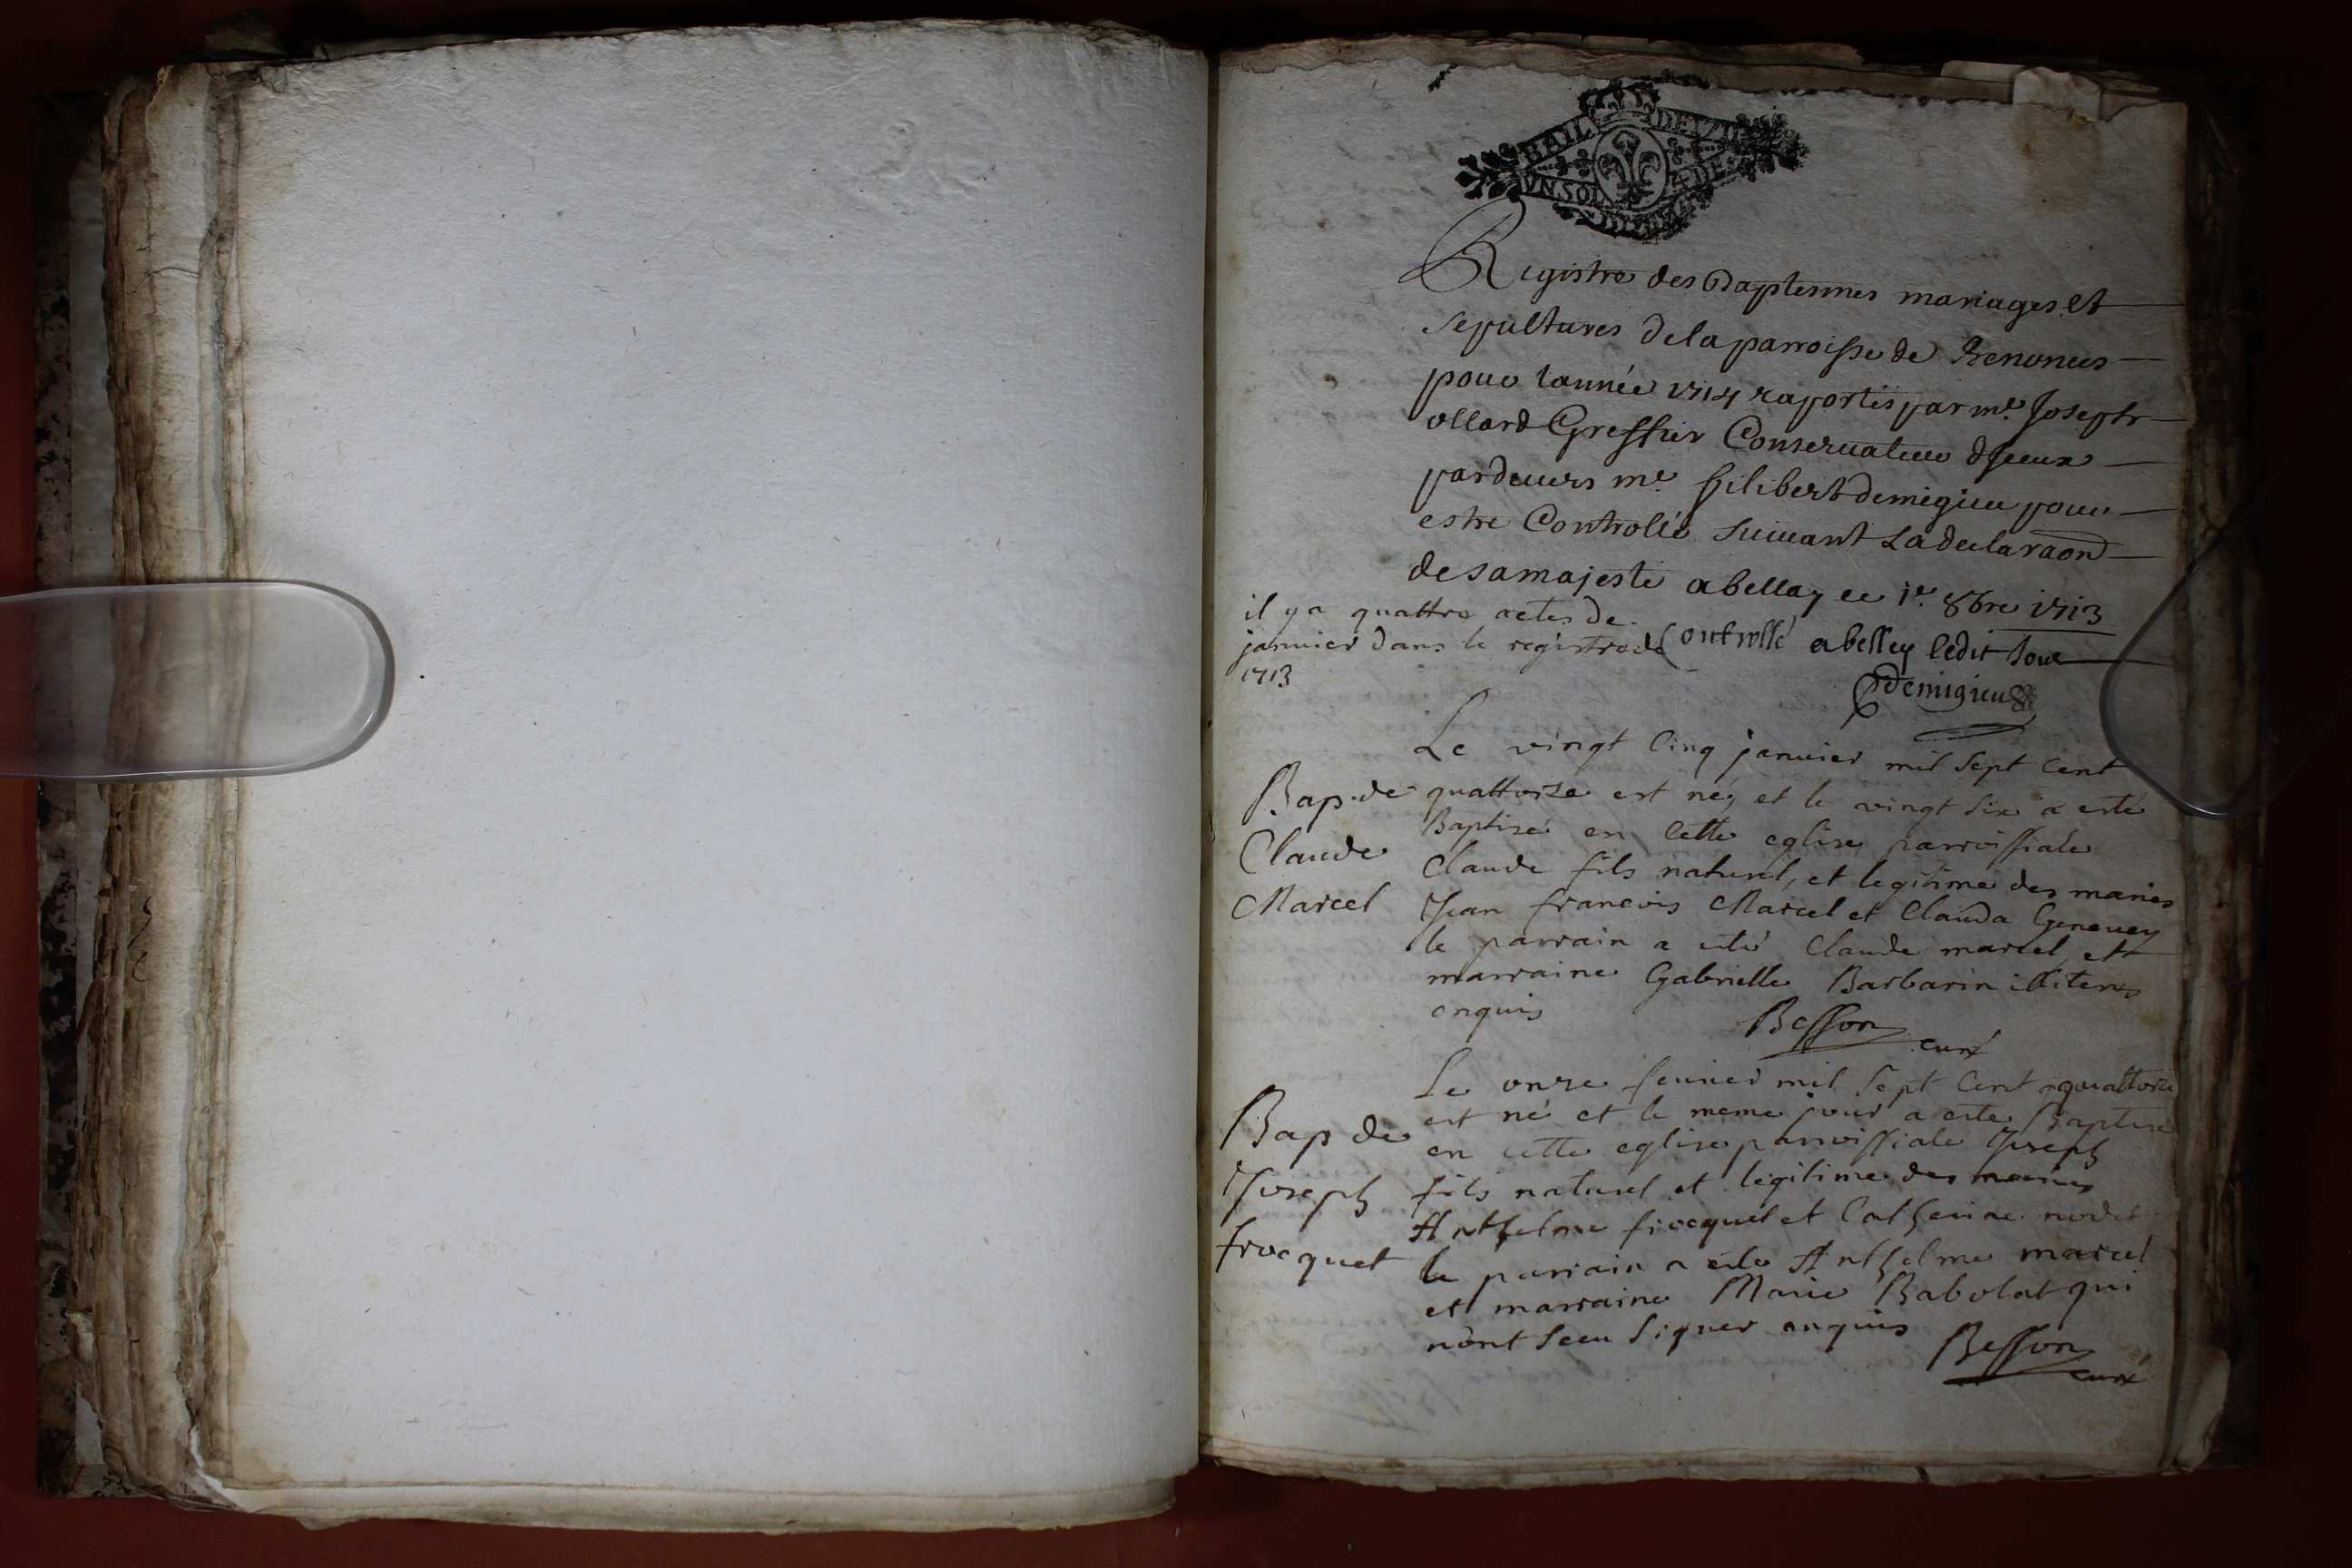 BAIL DE
VN.SOL 4 DE
Registre des Baptesmes mariages et
sepultures dela parroisse de
pour lannée 1714 raportés par me. Joseph
ollard Greffier Conservateur dyceux
pardevers me. filibert demigieu pour
estre Controllé suivant La declaraon
de sa majesté a bellay ce 1er. 8bre 1713
il y a quattre actes de
janvier dans le registre de
1713
Controllé a belley ledit jour
demigieu
Le vingt Cinq janvier mil Sept Cent
Bap. de
Claude
Marcel
quattorze est né, et le vingt Six a esté
Baptisé en Cette eglise parroissiale
Claude fils naturel, et legitime des mariés
Jean francois Marcel et Clauda Genevey
le parrain a esté Claude marcel et
marraine Gabrielle Barbarin illiteres
enquis
Besson
curé
Le onze fevrier mil Sept Cent quattorze
Bap de
Joseph
frocquet
est né et le meme jour a esté Baptisé
en cette eglise parroissiale Joseph
fils naturel et legitime des mariés
Anthelme frocquet et Catherine
le parrain a esté Anthelme marcel
et marraine Marie Babolat qui
nont Sceu Signer enquis
Besson
curé